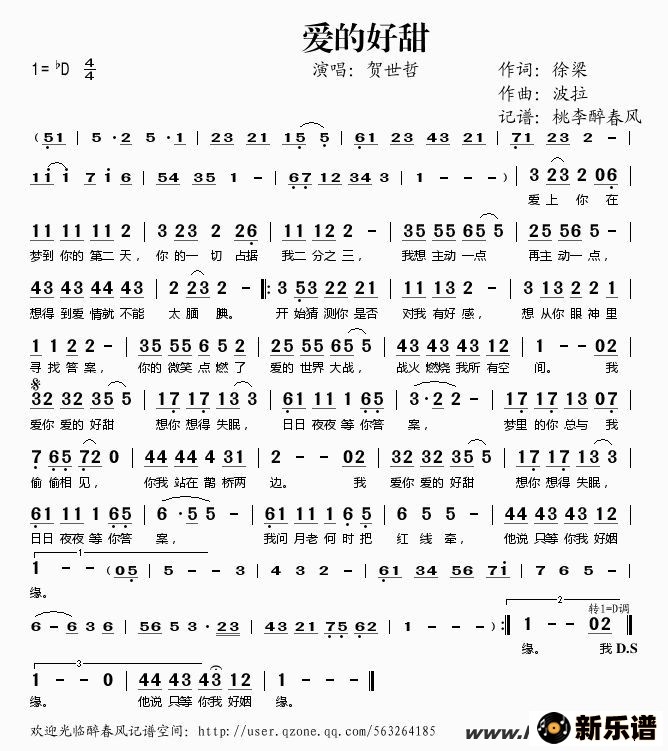 爱的好甜
1=♭D 4/4 演唱：贺世哲 作词：徐梁
作曲：波拉
记谱：桃李醉春风
（51 | 5·2 5·1 | 23 21 15 5 | 61 23 43 21 | 71 23
1i i 7 i 6 | 54 35 1 - | 67 12 34 3 | - - - ）| 3 23 2 06 |
爱上你在
11 11 11 12 | 3 23 2 26 | 11 12 2 - | 35 55 65 5 | 25 56 5 - |
梦到你的第二天， 你的一切占据 我二分之三， 我想主动一点 再主动一点，
43 43 44 43 | 2 23 2 - ‖: 3 53 22 21 | 11 13 2 - | 3 13 22 21 |
想得到爱情就不能 太腼腆。 开始猜测你是否 对我有好感， 想从你眼神里
1 1 2 2 - | 35 55 65 6 2 | 25 55 65 5 | 43 43 43 21 | 1 - - 02 |
寻找答案， 你的微笑点燃了 爱的世界大战， 战火燃烧我所有空 间。 我
32 32 35 5 | 17 17 13 3 | 61 11 11 65 | 3·2 2 - | 17 17 13 07 |
爱你爱的好甜 想你想得失眠， 日日夜夜等你答 案， 梦里的你总与我
7 65 72 0 | 44 44 4 31 | 2 - - 02 | 32 32 35 5 | 17 17 13 3 |
偷偷相见， 你我站在鹊桥两 边。 我 爱你爱的好甜 想你想得失眠，
61 11 1 65 | 6·5 5 - | 61 11 12 65 | 6 5 5 - | 44 43 43 12 |
日日夜夜等你答 案， 我问月老何时把 红线牵， 他说只等你我好姻
1
1 - - （05 | 5 - - 3 | 4 3 2 - | 61 34 56 7i | 7 6 5 - |
缘。
2 转1=D调
6 - 6 3 6 | 5 3 5 - 23 | 43 21 75 62 | 1 - - ）:‖ 1 - - 02 ‖
缘。 我D.S
3
1 - - 0 | 44 43 43 12 | 1 - - - ‖
缘。 他说只等你我好姻 缘。
欢迎光临醉春风记谱空间：http://user.qzone.qq.com/563264185 www. 新乐谱